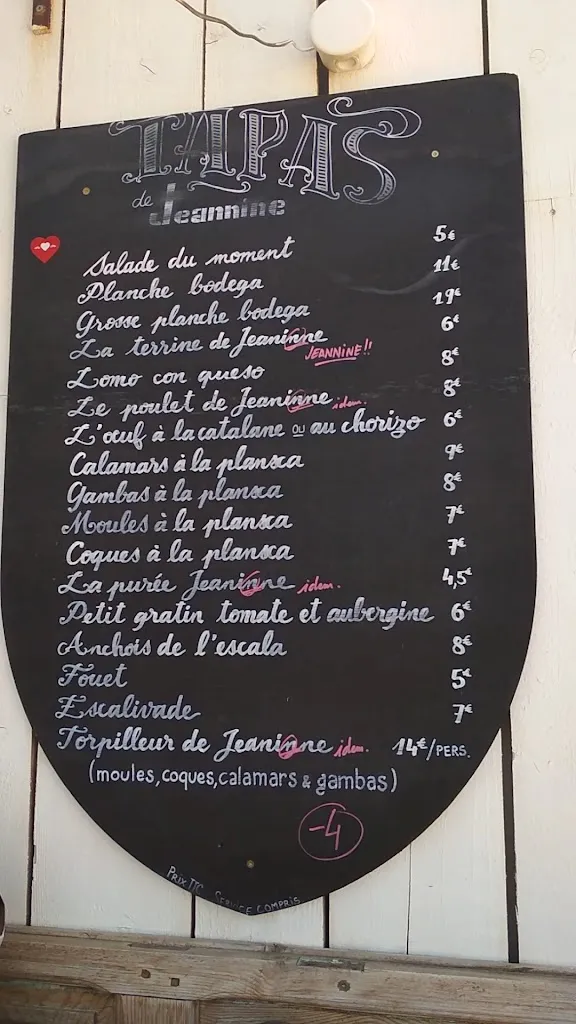 TAPAS
de Jeannine
Salade du moment 5€
Planche bodega 11€
Grosse planche bodega 19€
La terrine de Jeaninne 6€
JEANNINE!!
Lomo con queso 8€
Le poulet de Jeaninne idem. 8€
L'œuf à la catalane ou au chorizo 6€
Calamars à la planxa 9€
Gambas à la planxa 8€
Moules à la planxa 7€
Coques à la planxa 7€
La purée Jeaninne idem. 4,5€
Petit gratin tomate et aubergine 6€
Anchois de l'escala 8€
Fouet 5€
Escalivade 7€
Torpilleur de Jeaninne idem. 14€/PERS.
(moules, coques, calamars & gambas)
-4
PRIX TTC SERVICE COMPRIS